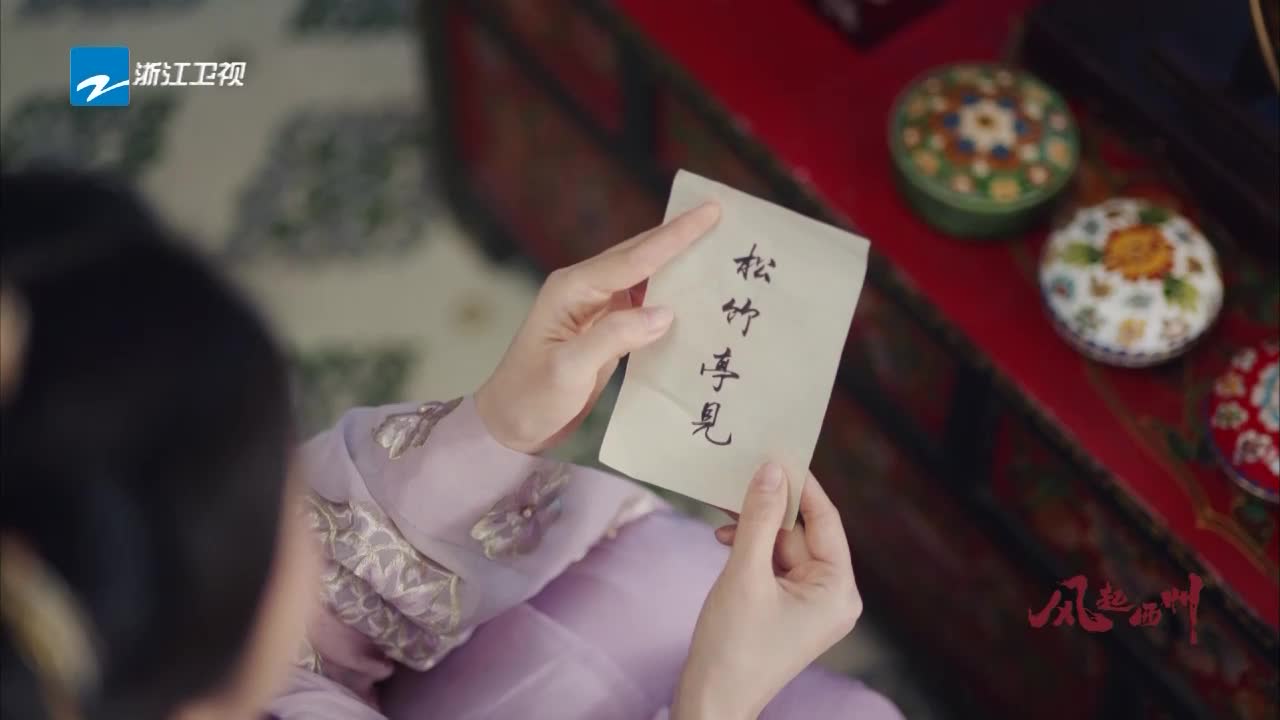 浙江卫视
松竹亭見
风起西州